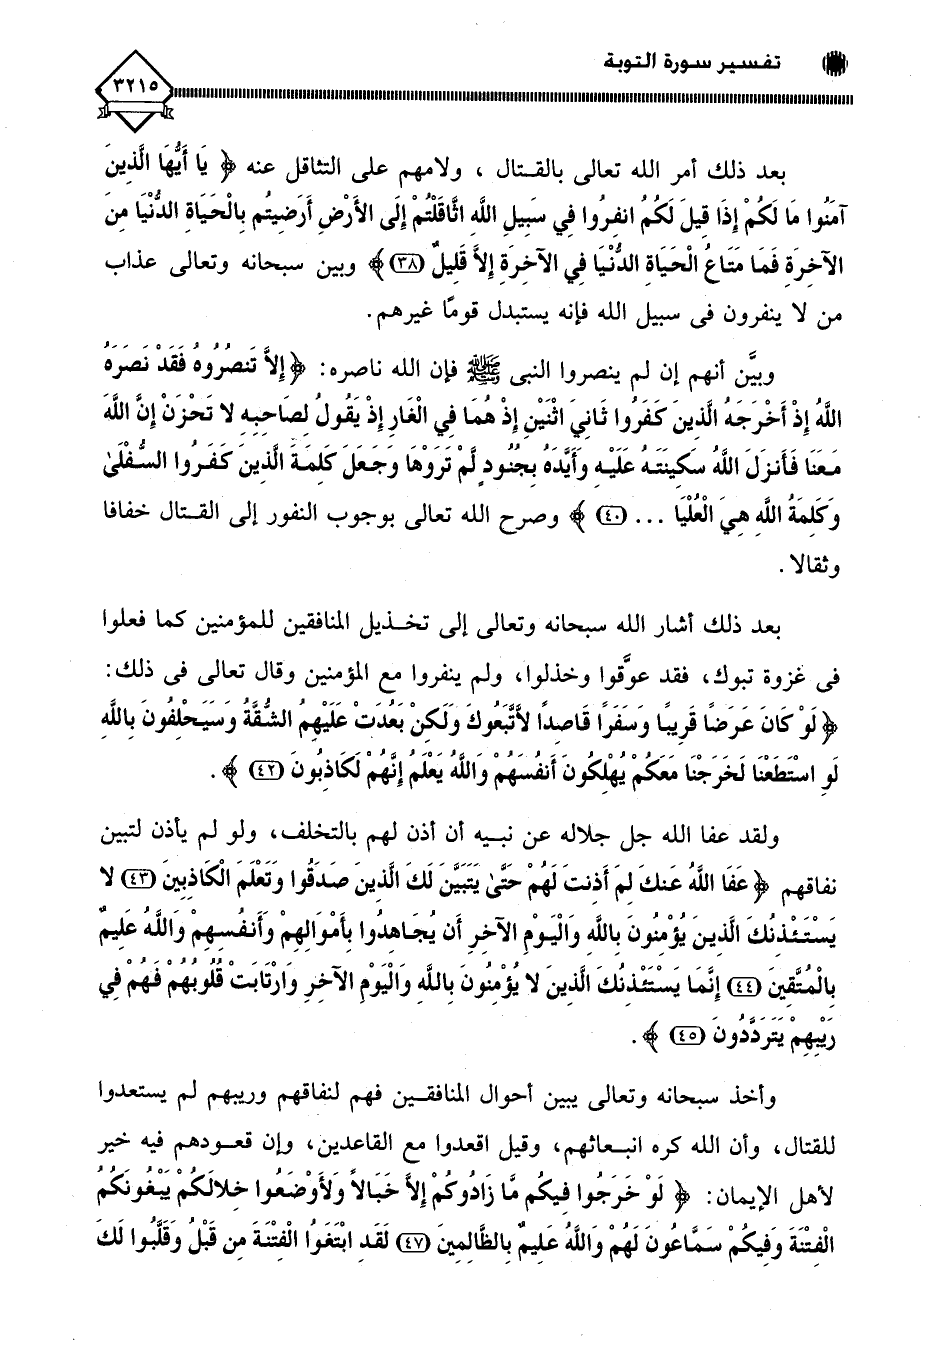 تفسير سورة التوبة
٣٢١٥
بعد ذلك أمر الله تعالى بالقـتال ، ولامهم على التثاقل عنه ﴿ يَا أَيُّهَا الَّذِينَ
آمَنُوا مَا لَكُمْ إِذَا قِيلَ لَكُمُ انفِرُوا فِي سَبِيلِ اللَّهِ اثَّاقَلْتُمْ إِلَى الأَرْضِ أَرَضِيتُم بِالْحَيَاةِ الدُّنْيَا مِنَ
الآخِرَةِ فَمَا مَتَاعُ الْحَيَاةِ الدُّنْيَا فِي الآخِرَةِ إِلاَّ قَلِيلٌ (٣٨) ﴾ وبين سبحانه وتعالى عذاب
من لا ينفرون فى سبيل الله فإنه يستبدل قومًا غيرهم.
وبيَّن أنهم إن لم ينصروا النبى ﷺ فإن الله ناصره: ﴿ إِلاَّ تَنصُرُوهُ فَقَدْ نَصَرَهُ
اللَّهُ إِذْ أَخْرَجَهُ الَّذِينَ كَفَرُوا ثَانِيَ اثْنَيْنِ إِذْ هُمَا فِي الْغَارِ إِذْ يَقُولُ لِصَاحِبِهِ لا تَحْزَنْ إِنَّ اللَّهَ
مَعَنَا فَأَنزَلَ اللَّهُ سَكِينَتَهُ عَلَيْهِ وَأَيَّدَهُ بِجُنُودٍ لَّمْ تَرَوْهَا وَجَعَلَ كَلِمَةَ الَّذِينَ كَفَرُوا السُّفْلَىٰ
وَكَلِمَةُ اللَّهِ هِيَ الْعُلْيَا ... (٤٠) ﴾ وصرح الله تعالى بوجوب النفور إلى القـتال خفافا
وثقالا .
بعد ذلك أشار الله سبحانه وتعالى إلى تخـذيل المنافقين للمؤمنين كما فعلوا
فى غزوة تبوك، فقد عوَّقوا وخذلوا، ولم ينفروا مع المؤمنين وقال تعالى فى ذلك:
﴿ لَوْ كَانَ عَرَضًا قَرِيبًا وَسَفَرًا قَاصِدًا لاَّتَّبَعُوكَ وَلَكِنْ بَعُدَتْ عَلَيْهِمُ الشُّقَّةُ وَسَيَحْلِفُونَ بِاللَّهِ
لَوِ اسْتَطَعْنَا لَخَرَجْنَا مَعَكُمْ يُهْلِكُونَ أَنفُسَهُمْ وَاللَّهُ يَعْلَمُ إِنَّهُمْ لَكَاذِبُونَ (٤٢) ﴾ .
ولقد عفا الله جل جلاله عن نبـيه أن أذن لهم بالتخلف، ولو لم يأذن لتبين
نفاقهم ﴿ عَفَا اللَّهُ عَنكَ لِمَ أَذِنتَ لَهُمْ حَتَّىٰ يَتَبَيَّنَ لَكَ الَّذِينَ صَدَقُوا وَتَعْلَمَ الْكَاذِبِينَ (٤٣) لا
يَسْتَئْذِنُكَ الَّذِينَ يُؤْمِنُونَ بِاللَّهِ وَالْيَوْمِ الآخِرِ أَن يُجَاهِدُوا بِأَمْوَالِهِمْ وَأَنفُسِهِمْ وَاللَّهُ عَلِيمٌ
بِالْمُتَّقِينَ (٤٤) إِنَّمَا يَسْتَئْذِنُكَ الَّذِينَ لا يُؤْمِنُونَ بِاللَّهِ وَالْيَوْمِ الآخِرِ وَارْتَابَتْ قُلُوبُهُمْ فَهُمْ فِي
رَيْبِهِمْ يَتَرَدَّدُونَ (٤٥) ﴾ .
وأخذ سبحانه وتعالى يبين أحوال المنافقـين فهم لنفاقهم وريبهم لم يستعدوا
للقتال، وأن الله كره انبـعاثهم، وقيل اقعدوا مع القاعدين، وإن قعـودهم فيه خير
لأهل الإيمان: ﴿ لَوْ خَرَجُوا فِيكُم مَّا زَادُوكُمْ إِلاَّ خَبَالاً وَلأَوْضَعُوا خِلالَكُمْ يَبْغُونَكُمُ
الْفِتْنَةَ وَفِيكُمْ سَمَّاعُونَ لَهُمْ وَاللَّهُ عَلِيمٌ بِالظَّالِمِينَ (٤٧) لَقَدِ ابْتَغَوُا الْفِتْنَةَ مِن قَبْلُ وَقَلَّبُوا لَكَ